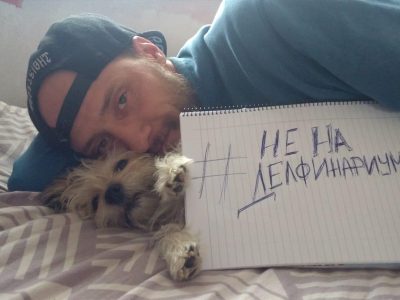 # НЕ НА
ДЕЛФИНАРИУМ